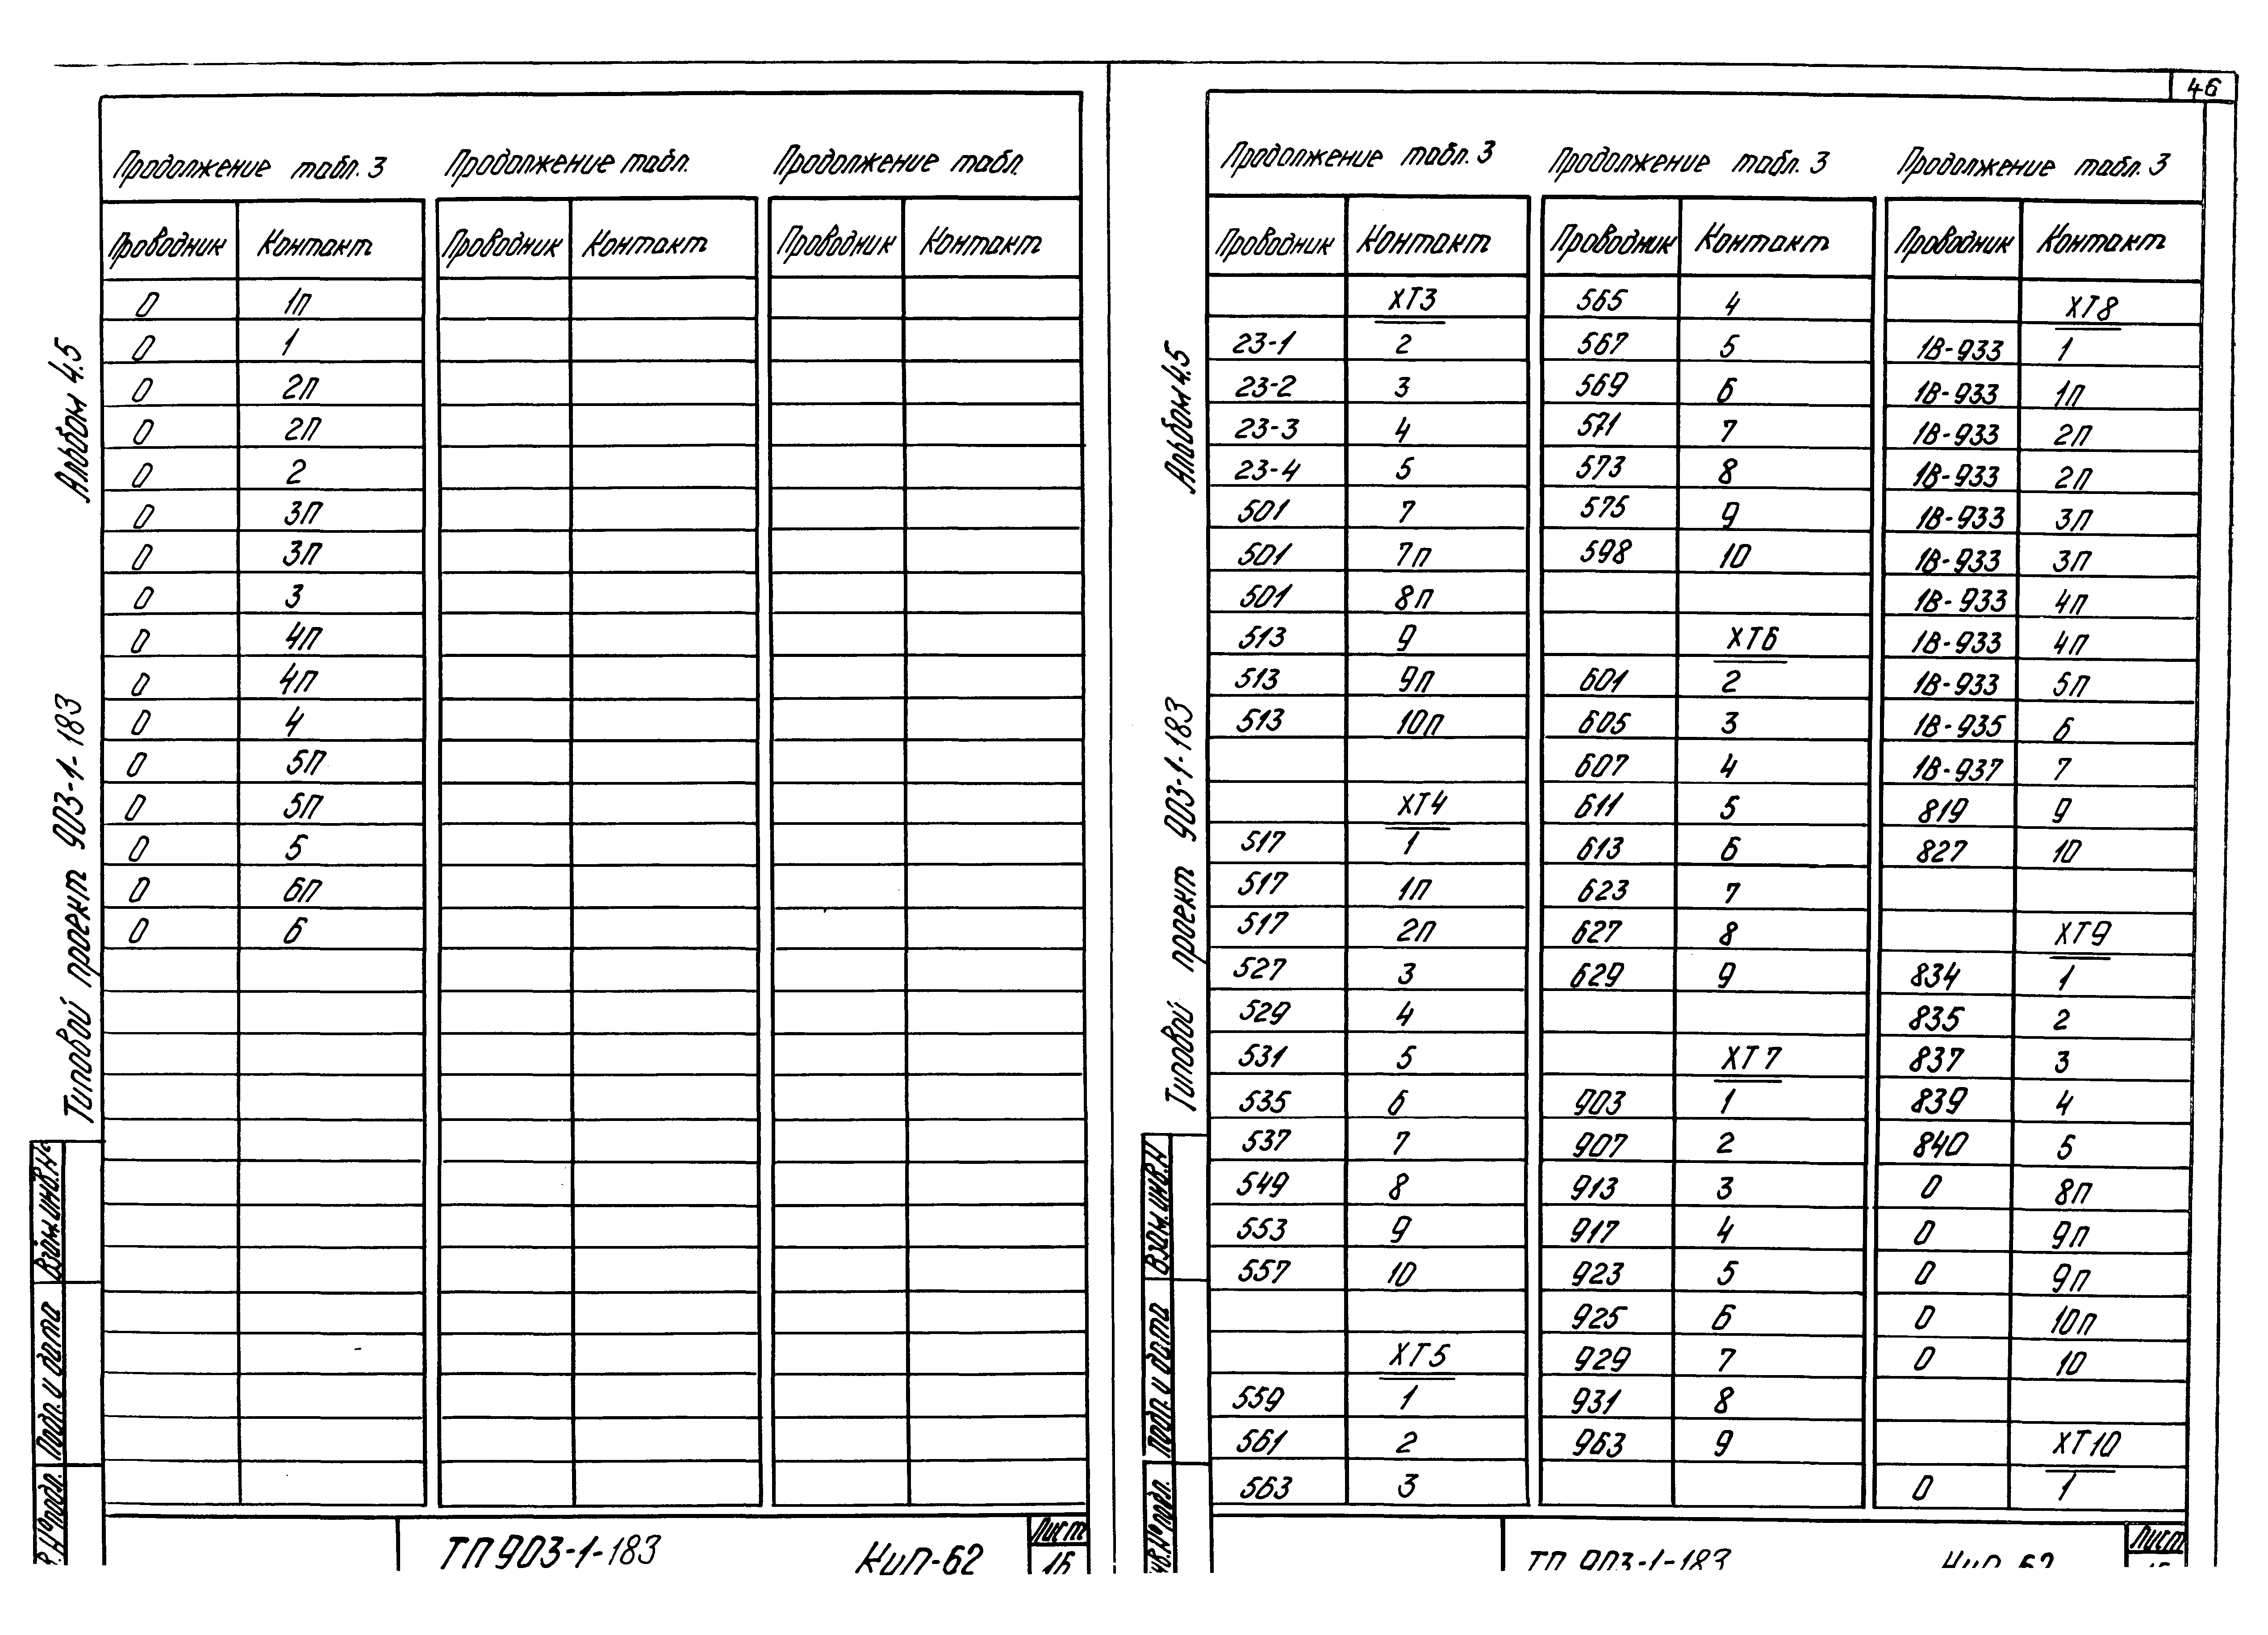 46
Альбом 4.5
Типовой проект 903-1-183
Взам.инв.№
Подп. и дата
Продолжение табл. 3
Проводник Контакт
0 1п
0 1
0 2п
0 2п
0 2
0 3п
0 3п
0 3
0 4п
0 4п
0 4
0 5п
0 5п
0 5
0 6п
0 6
Продолжение табл.
Проводник Контакт
Продолжение табл.
Проводник Контакт
ТП 903-1-183 КиП-62 Лист
16
Альбом 4.5
Типовой проект 903-1-183
Взам.инв.N
Подп. и дата
Продолжение табл. 3
Проводник Контакт
ХТ3
23-1 2
23-2 3
23-3 4
23-4 5
501 7
501 7п
501 8п
513 9
513 9п
513 10п
ХТ4
517 1
517 1п
517 2п
527 3
529 4
531 5
535 6
537 7
549 8
553 9
557 10
ХТ5
559 1
561 2
563 3
Продолжение табл. 3
Проводник Контакт
565 4
567 5
569 6
571 7
573 8
575 9
598 10
ХТ6
601 2
605 3
607 4
611 5
613 6
623 7
627 8
629 9
ХТ7
903 1
907 2
913 3
917 4
923 5
925 6
929 7
931 8
963 9
Продолжение табл. 3
Проводник Контакт
ХТ8
1В-933 1
1В-933 1п
1В-933 2п
1В-933 2п
1В-933 3п
1В-933 3п
1В-933 4п
1В-933 4п
1В-933 5п
1В-935 6
1В-937 7
819 9
827 10
ХТ9
834 1
835 2
837 3
839 4
840 5
0 8п
0 9п
0 9п
0 10п
0 10
ХТ10
0 1
ТП 903-1-183 КиП-62 Лист